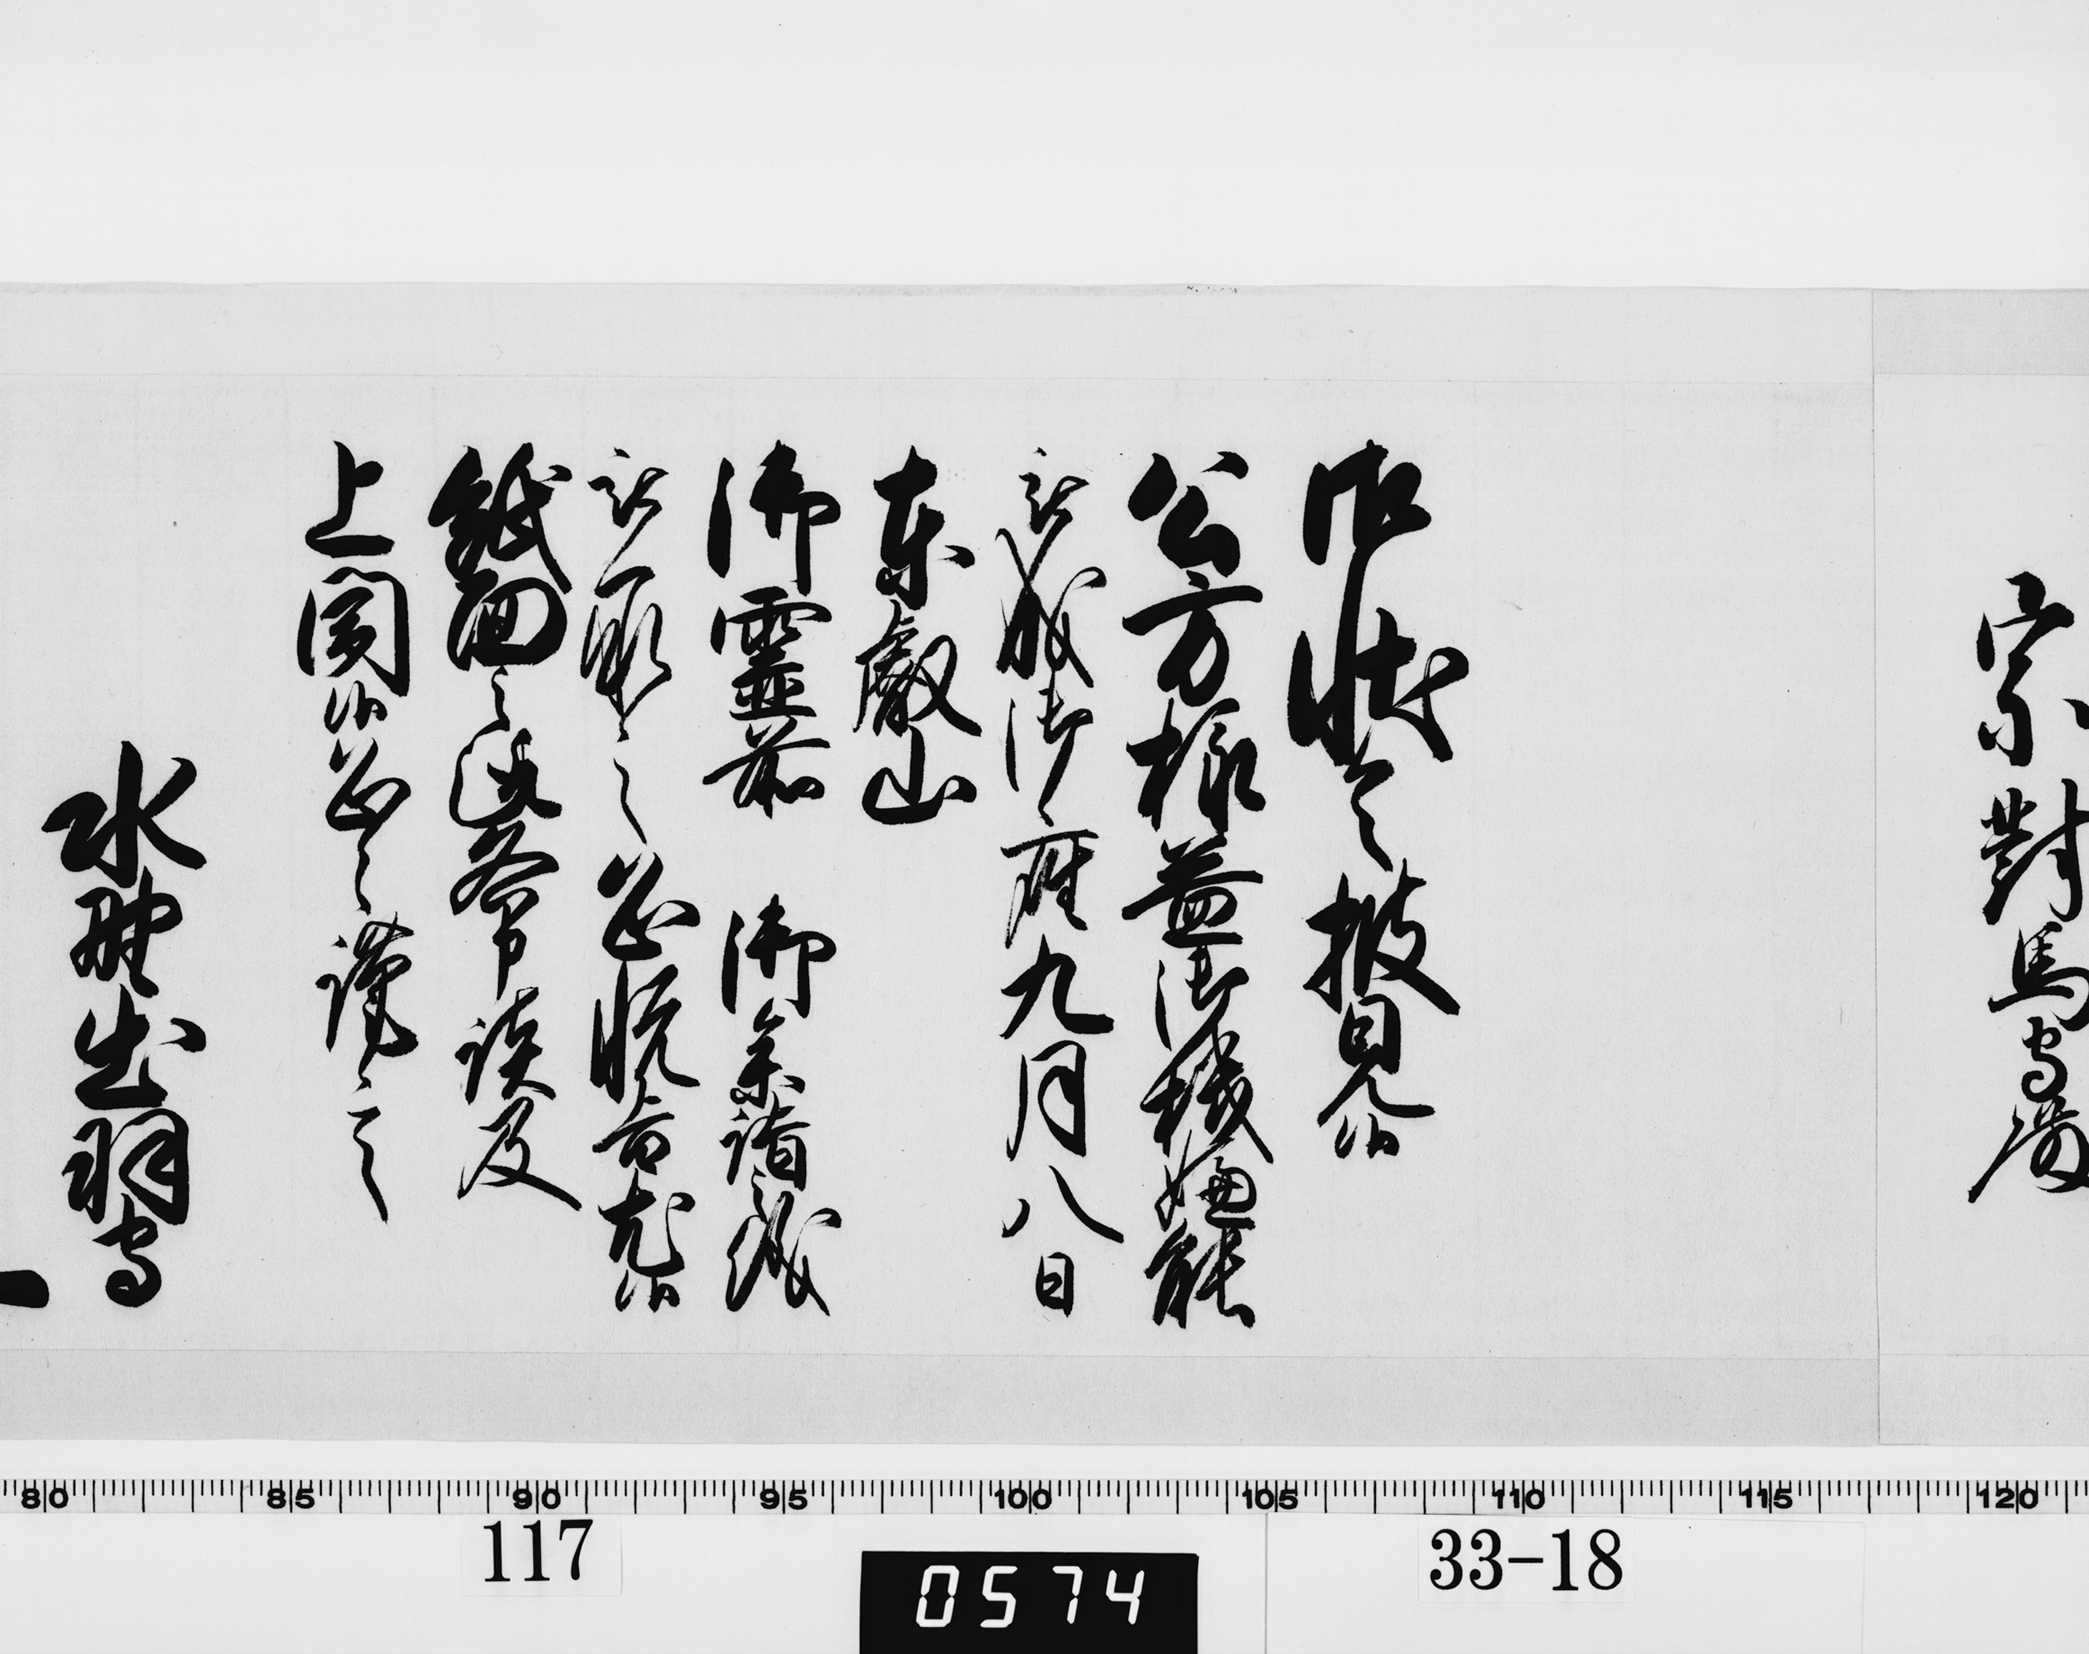 宗對馬守殿
御状令披見候
公方様益御機嫌能
被成御座九月八日
東叡山
御靈前 御参詣之儀
被承之恐悦旨尤候
紙面之趣各申談及
上聞候恐々謹言
水野出羽守
80 85 90 95 100 105 110 115 120
117
0574
33-18